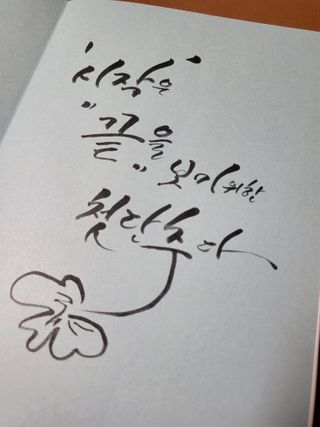 '시작은'
"끝을
" 보기위한
첫단추다